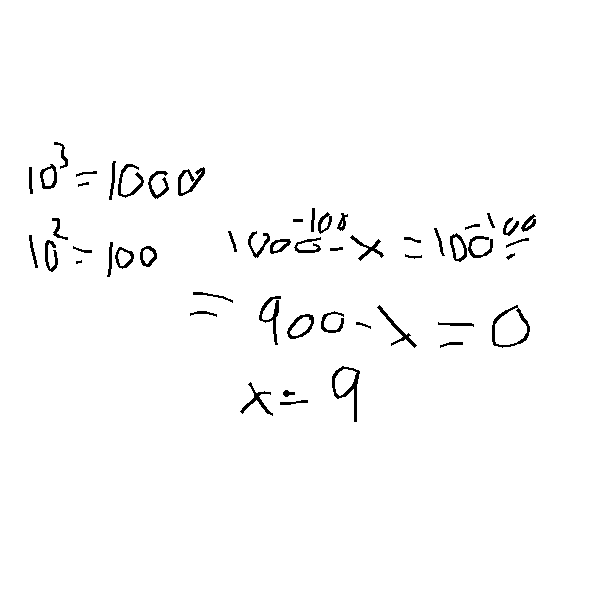 10³=1000
10²=100
1000⁻¹⁰⁰-x=100⁻¹⁰⁰=
=900-x=0
x=9